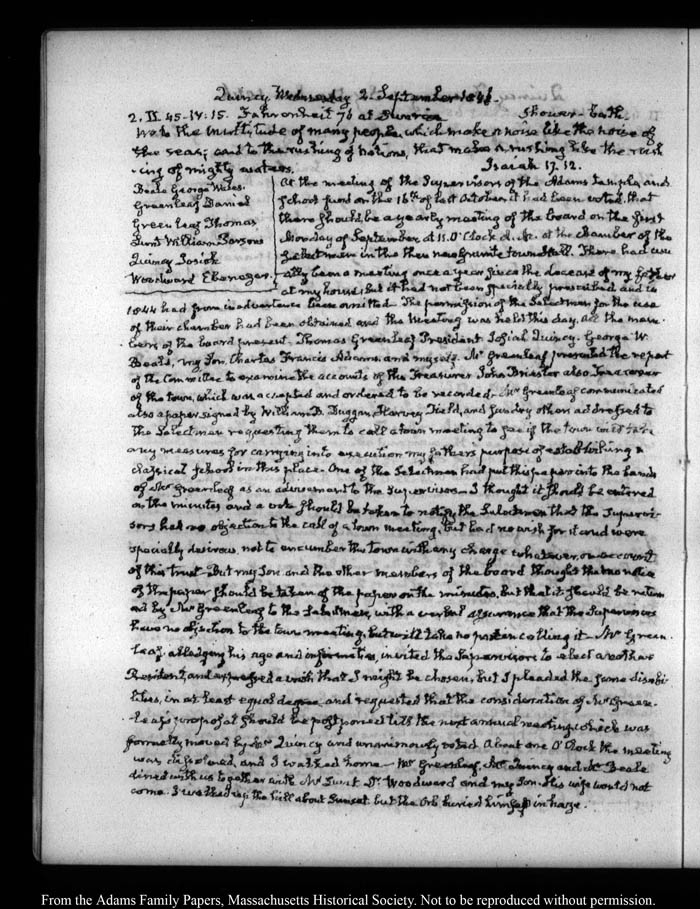 Quincy Wednesday 2. September 1846.
2. IV. 45-IV: 15. Fahrenheit 76 at Sunrise Shower-bath.
Wo to the multitude of many people, which make a noise like the noise of
the seas; and to the rushing of nations, that make a rushing like the rush
-ing of mighty waters. Isaiah 17. 12.
Beale George Wales.
Greenleaf Daniel
Greenleaf Thomas
Lunt William Parsons
Quincy Josiah
Woodward Ebenezer.
At the meeting of the Supervisors of the Adams Temple and
School fund on the 16th of last October it had been voted that
there should be a yearly meeting of the board on the first
Monday of September at 11. O'Clock A.M. at the Chamber of the
Selectmen in the then new granite town Hall. There had usu
ally been a meeting once a year since the decease of my father
at my house, but it had not been specially prescribed and in
1844 had from inadvertence been omitted. The permission of the Selectmen for the use
of their chamber had been obtained and the Meeting was held this day, all the mem
bers of the board present. Thomas Greenleaf President Josiah Quincy. George W.
Beale, my Son, Charles Francis Adams, and myself. Mr Greenleaf presented the report
of the Committee to examine the accounts of the Treasurer John Briesler also Treasurer
of the town, which was accepted and ordered to be recorded. Mr Greenleaf communicated
also a paper signed by William B. Duggan, Harvey Field, and sundry others addressed to
the Selectmen requesting them to call a town meeting to see if the town will take
any measures for carrying into execution my fathers purpose of establishing a
classical School in this place. One of the Selectmen had put this paper into the hands
of Mr Greenleaf as an advisement to the Supervisors. I thought it should be entered
on the minutes and a vote should be taken to notify the Selectmen that the Supervi-
sors had no objection to the call of a town meeting, but had no wish for it and were
specially desirous, not to encumber the town with any charge whatever, on account
of this trust. But my Son and the other members of the board thought that no notice
of the paper should be taken of the paper on the minutes, but that it should be return
ed by Mr Greenleaf to the Selectmen, with a verbal assurance that the Supervisors
have no objection to the town meeting, but will take no part in calling it. Mr Green
leaf, alledging his age and infirmities, invited the Supervisors to elect another
President, and expressed a wish that I might be chosen, but I pleaded the same disabi-
lities, in at least equal degree and requested that the consideration of Mr Green-
-leaf's proposal should be postponed till the next annual meeting; which was
formally moved by Mr Quincy and unanimously voted. About one O'Clock the meeting
was dissolved, and I walked home. Mr Greenleaf, Mr Quincy and Mr Beale
dined with us together with Mr Lunt Dr Woodward and my Son. His wife would not
come. I walked up the hill about Sunset but the Orb buried himself in haze.
From the Adams Family Papers, Massachusetts Historical Society. Not to be reproduced without permission.